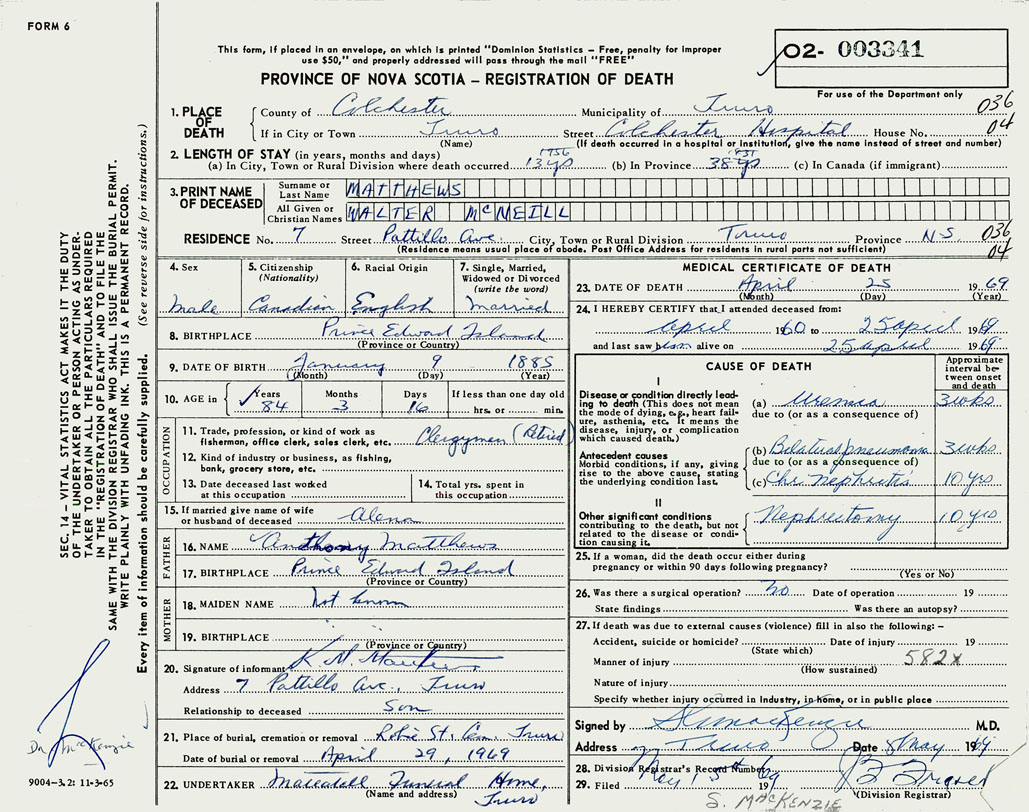 FORM 6
This form, if placed in an envelope, on which is printed "Dominion Statistics - Free, penalty for improper
use $50," and properly addressed will pass through the mail "FREE"
PROVINCE OF NOVA SCOTIA - REGISTRATION OF DEATH
02- 003341
For use of the Department only
036
04
1. PLACE OF DEATH
County of Colchester Municipality of Truro
If in City or Town Truro Street Colchester Hospital House No.
(Name) (If death occurred in a hospital or institution, give the name instead of street and number)
2. LENGTH OF STAY (in years, months and days) 1956 1931
(a) In City, Town or Rural Division where death occurred 13 yrs (b) In Province 38 yrs (c) In Canada (if immigrant)
3. PRINT NAME OF DECEASED
Surname or Last Name MATTHEWS
All Given or Christian Names WALTER McNEILL
RESIDENCE No. 7 Street Pattillo Ave. City, Town or Rural Division Truro Province N.S. 036
(Residence means usual place of abode. Post Office Address for residents in rural parts not sufficient) 04
4. Sex 5. Citizenship (Nationality) 6. Racial Origin 7. Single, Married, Widowed or Divorced (write the word)
Male Canadian English Married
8. BIRTHPLACE Prince Edward Island
(Province or Country)
9. DATE OF BIRTH January 9 1885
(Month) (Day) (Year)
10. AGE in Years Months Days If less than one day old
84 3 16 hrs. or min.
OCCUPATION
11. Trade, profession, or kind of work as
fisherman, office clerk, sales clerk, etc. Clergymen (Retired)
12. Kind of industry or business, as fishing,
bank, grocery store, etc.
13. Date deceased last worked at this occupation 14. Total yrs. spent in this occupation
15. If married give name of wife
or husband of deceased Alena
FATHER
16. NAME Anthony Matthews
17. BIRTHPLACE Prince Edward Island
(Province or Country)
MOTHER
18. MAIDEN NAME Not known
19. BIRTHPLACE
(Province or Country)
20. Signature of informant K. M. Matthews
Address 7 Pattillo Ave., Truro
Relationship to deceased Son
21. Place of burial, cremation or removal Robie St. Cem. Truro
Date of burial or removal April 29, 1969
22. UNDERTAKER Funeral Home,
(Name and address) Truro
MEDICAL CERTIFICATE OF DEATH
23. DATE OF DEATH April 25 1969
(Month) (Day) (Year)
24. I HEREBY CERTIFY that I attended deceased from:
April 1960 to 25 April 1969
and last saw him alive on 25 April 1969
CAUSE OF DEATH
Approximate interval between onset and death
I
Disease or condition directly leading to death (This does not mean the mode of dying, e.g., heart failure, asthenia, etc. It means the disease, injury, or complication which caused death.)
(a) Uremia 3 wks
due to (or as a consequence of)
Antecedent causes
Morbid conditions, if any, giving rise to the above cause, stating the underlying condition last.
(b) Bilateral pneumonia 3 wks
due to (or as a consequence of)
(c) Chr. Nephritis 10 yrs
II
Other significant conditions contributing to the death, but not related to the disease or condition causing it.
Nephrectomy 10 yrs
25. If a woman, did the death occur either during
pregnancy or within 90 days following pregnancy?
(Yes or No)
26. Was there a surgical operation? No Date of operation 19
State findings Was there an autopsy?
27. If death was due to external causes (violence) fill in also the following: -
Accident, suicide or homicide? Date of injury 19
(State which)
Manner of injury 582x
(How sustained)
Nature of injury
Specify whether injury occurred in Industry, in home, or in public place
Signed by MacKenzie M.D.
Address Truro Date 8 May 1969
28. Division Registrar's Record Number
29. Filed May 15th 1969
(Division Registrar)
S. MACKENZIE
SEC. 14 - VITAL STATISTICS ACT MAKES IT THE DUTY
OF THE UNDERTAKER OR PERSON ACTING AS UNDER-
TAKER TO OBTAIN ALL THE PARTICULARS REQUIRED
IN THE "REGISTRATION OF DEATH" AND TO FILE THE
SAME WITH THE DIVISION REGISTRAR WHO SHALL ISSUE THE BURIAL PERMIT.
WRITE PLAINLY WITH UNFADING INK. THIS IS A PERMANENT RECORD.
Every item of information should be carefully supplied. (See reverse side for instructions.)
Dr. MacKenzie
9004-3.2: 11-3-65